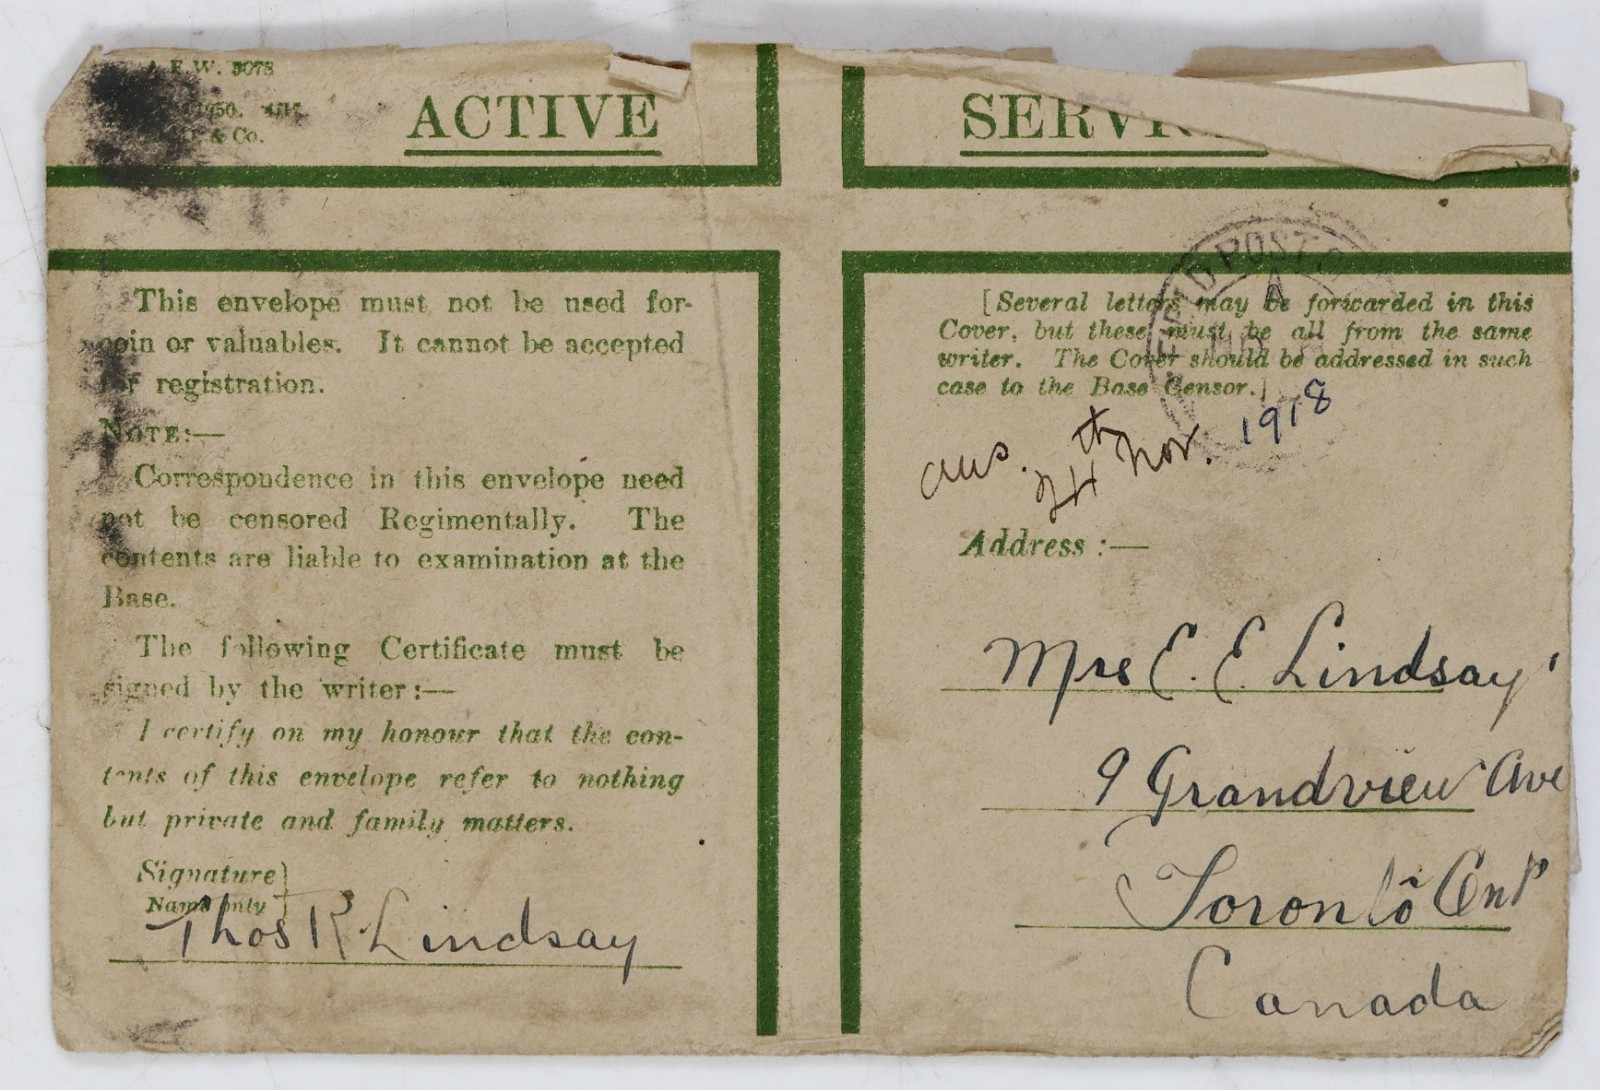 A.F.W. 3078
& Co.
ACTIVE
This envelope must not be used for-
coin or valuables. It cannot be accepted
for registration.
NOTE:—
Correspondence in this envelope need
not be censored Regimentally. The
contents are liable to examination at the
Base.
The following Certificate must be
signed by the writer:—
I certify on my honour that the con-
tents of this envelope refer to nothing
but private and family matters.
Signature }
Name only }
Thos R Lindsay
[Several letters may be forwarded in this
Cover, but these must be all from the same
writer. The Cover should be addressed in such
case to the Base Censor.]
FIELD POST
A
ans. 24th Nov. 1918
Address :—
Mrs E. E. Lindsay
9 Grandview Ave
Toronto Ont
Canada